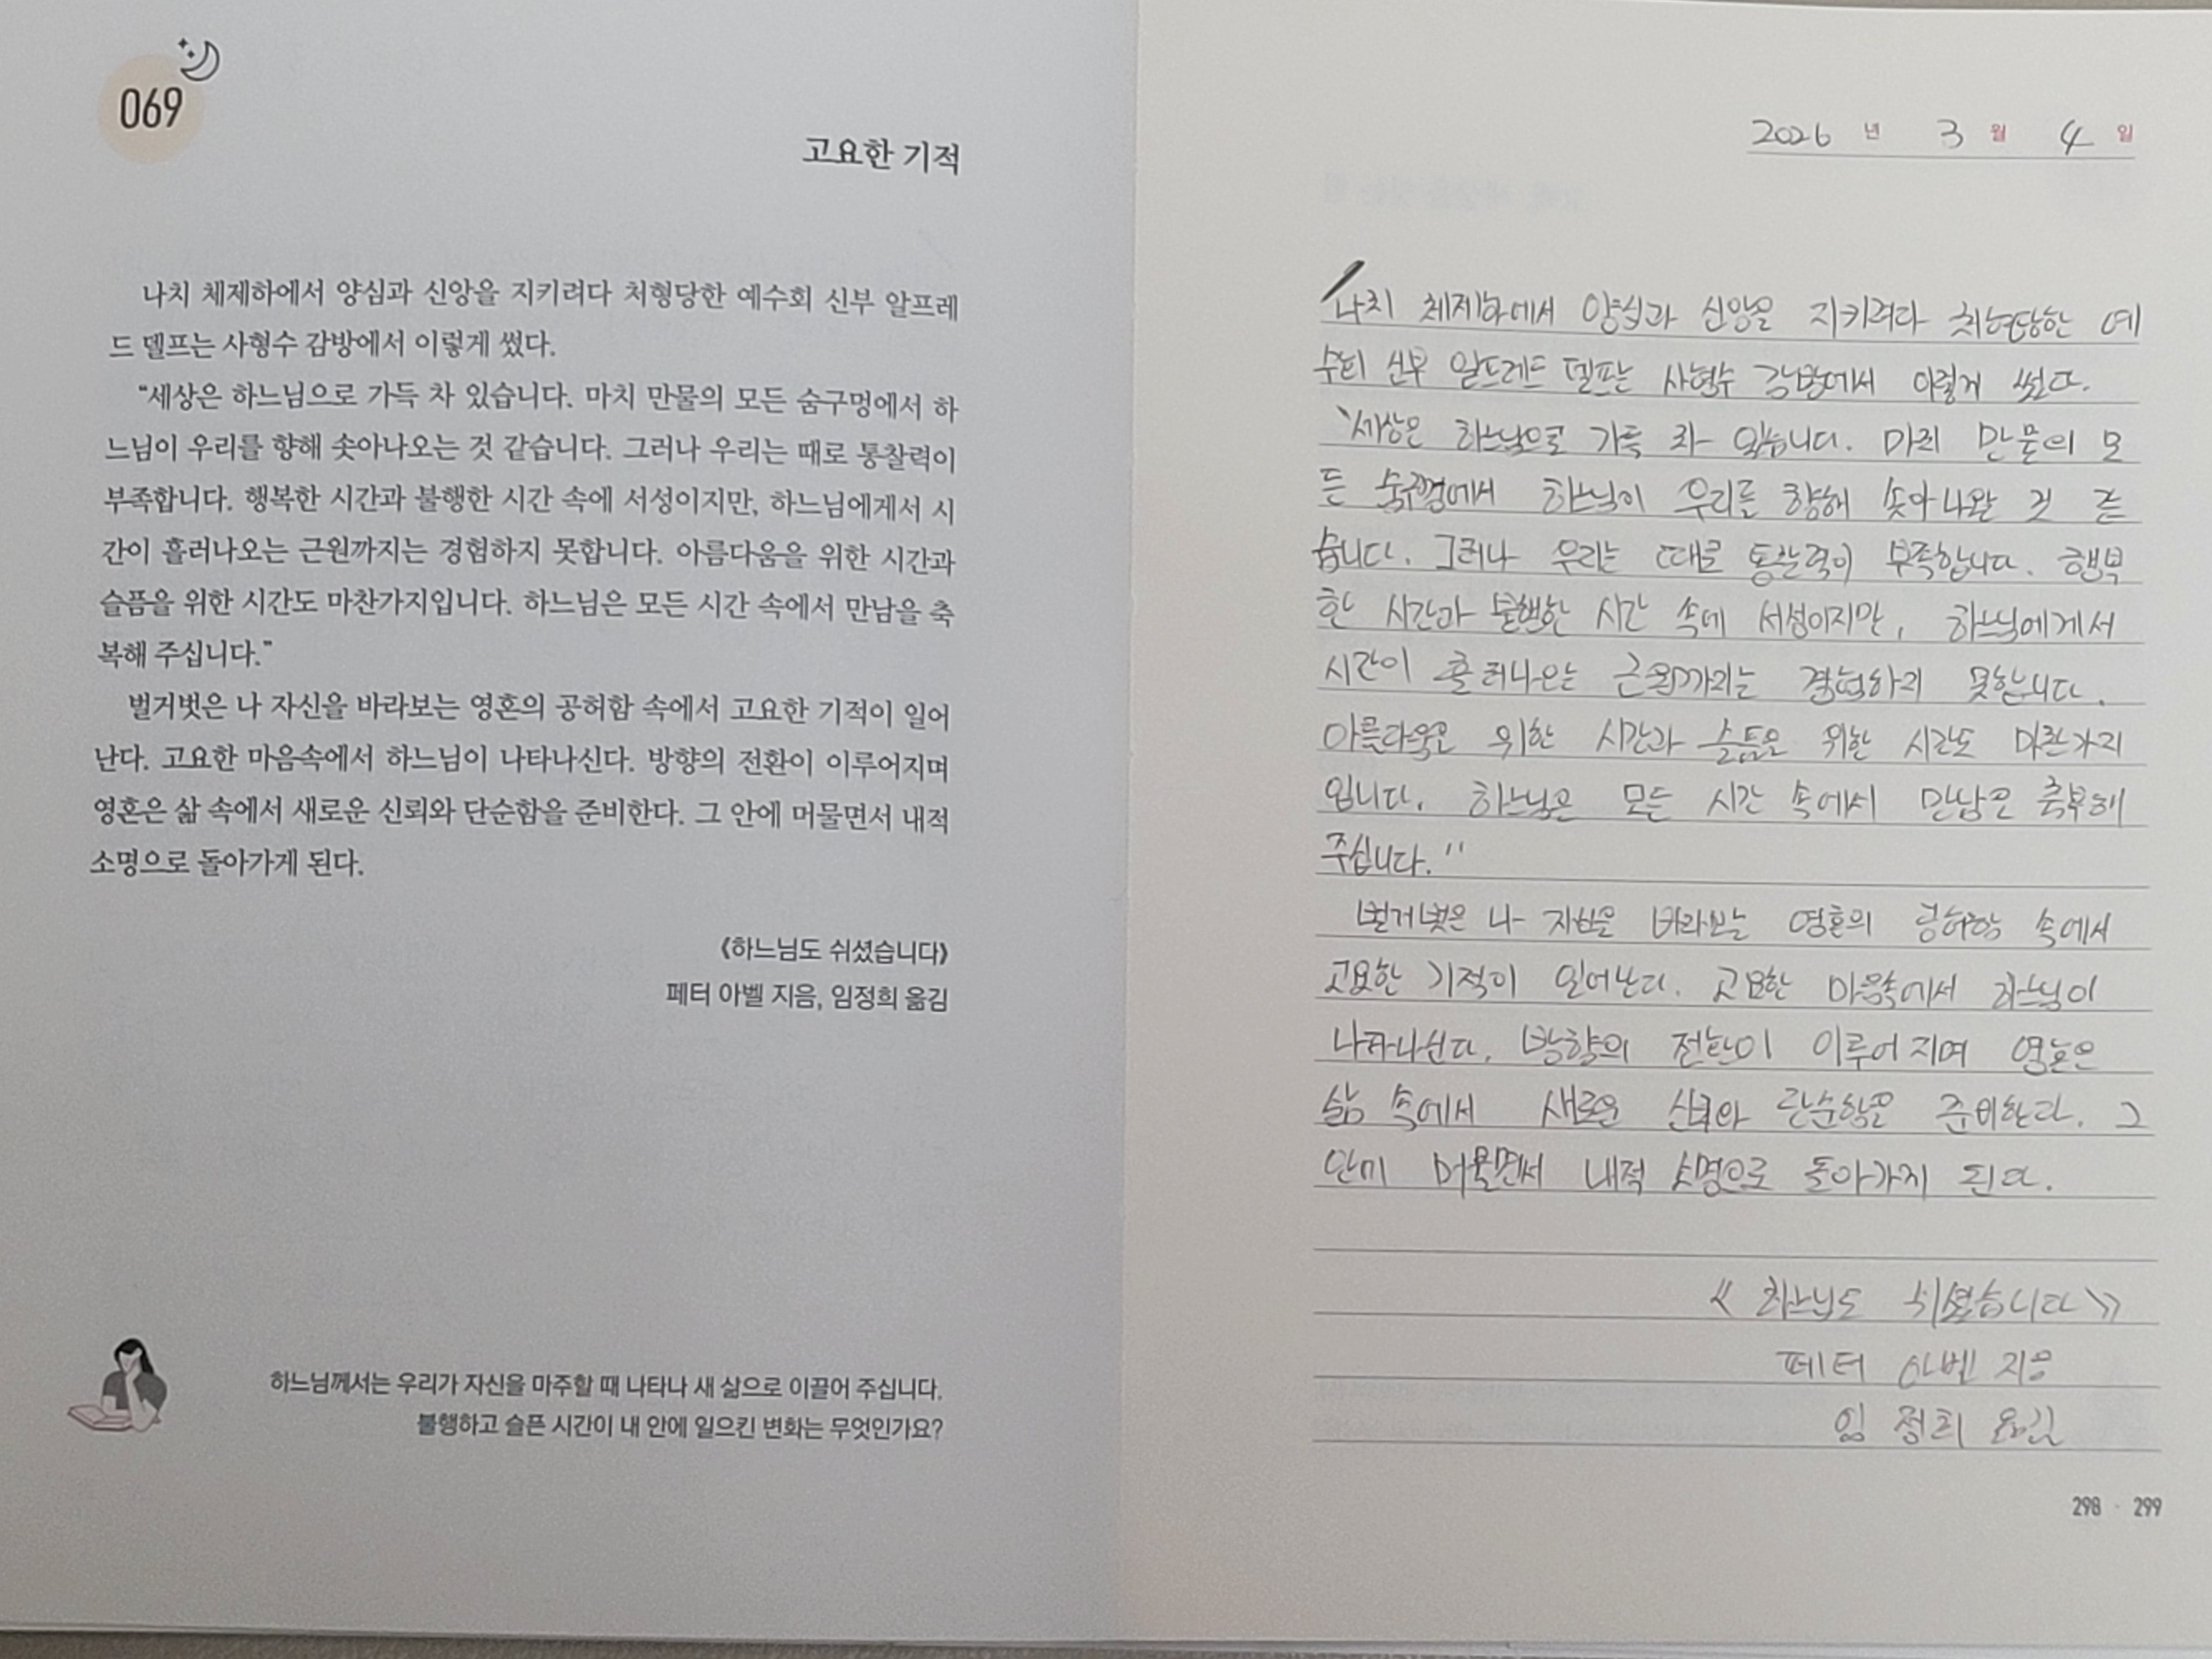 069
고요한 기적
나치 체제하에서 양심과 신앙을 지키려다 처형당한 예수회 신부 알프레
드 델프는 사형수 감방에서 이렇게 썼다.
“세상은 하느님으로 가득 차 있습니다. 마치 만물의 모든 숨구멍에서 하
느님이 우리를 향해 솟아나오는 것 같습니다. 그러나 우리는 때로 통찰력이
부족합니다. 행복한 시간과 불행한 시간 속에 서성이지만, 하느님에게서 시
간이 흘러나오는 근원까지는 경험하지 못합니다. 아름다움을 위한 시간과
슬픔을 위한 시간도 마찬가지입니다. 하느님은 모든 시간 속에서 만남을 축
복해 주십니다.”
벌거벗은 나 자신을 바라보는 영혼의 공허함 속에서 고요한 기적이 일어
난다. 고요한 마음속에서 하느님이 나타나신다. 방향의 전환이 이루어지며
영혼은 삶 속에서 새로운 신뢰와 단순함을 준비한다. 그 안에 머물면서 내적
소명으로 돌아가게 된다.
《하느님도 쉬셨습니다》
페터 아벨 지음, 임정희 옮김
하느님께서는 우리가 자신을 마주할 때 나타나 새 삶으로 이끌어 주십니다.
불행하고 슬픈 시간이 내 안에 일으킨 변화는 무엇인가요?
2026 년 3 월 4 일
나치 체제하에서 양심과 신앙을 지키려다 처형당한 예
수회 신부 알프레드 델프는 사형수 감방에서 이렇게 썼다.
"세상은 하느님으로 가득 차 있습니다. 마치 만물의 모
든 숨구멍에서 하느님이 우리를 향해 솟아나온 것 같
습니다. 그러나 우리는 때로 통찰력이 부족합니다. 행복
한 시간과 불행한 시간 속에 서성이지만, 하느님에게서
시간이 흘러나오는 근원까지는 경험하지 못합니다.
아름다움을 위한 시간과 슬픔을 위한 시간도 마찬가지
입니다. 하느님은 모든 시간 속에서 만남을 축복해
주십니다."
벌거벗은 나 자신을 바라보는 영혼의 공허함 속에서
고요한 기적이 일어난다. 고요한 마음속에서 하느님이
나타나신다. 방향의 전환이 이루어지며 영혼은
삶 속에서 새로운 신뢰와 단순함을 준비한다. 그
머물면서 내적 소명으로 돌아가지 된다.
《하느님도 쉬셨습니다》
페터 아벨 지음
임정희 옮김
298 · 299